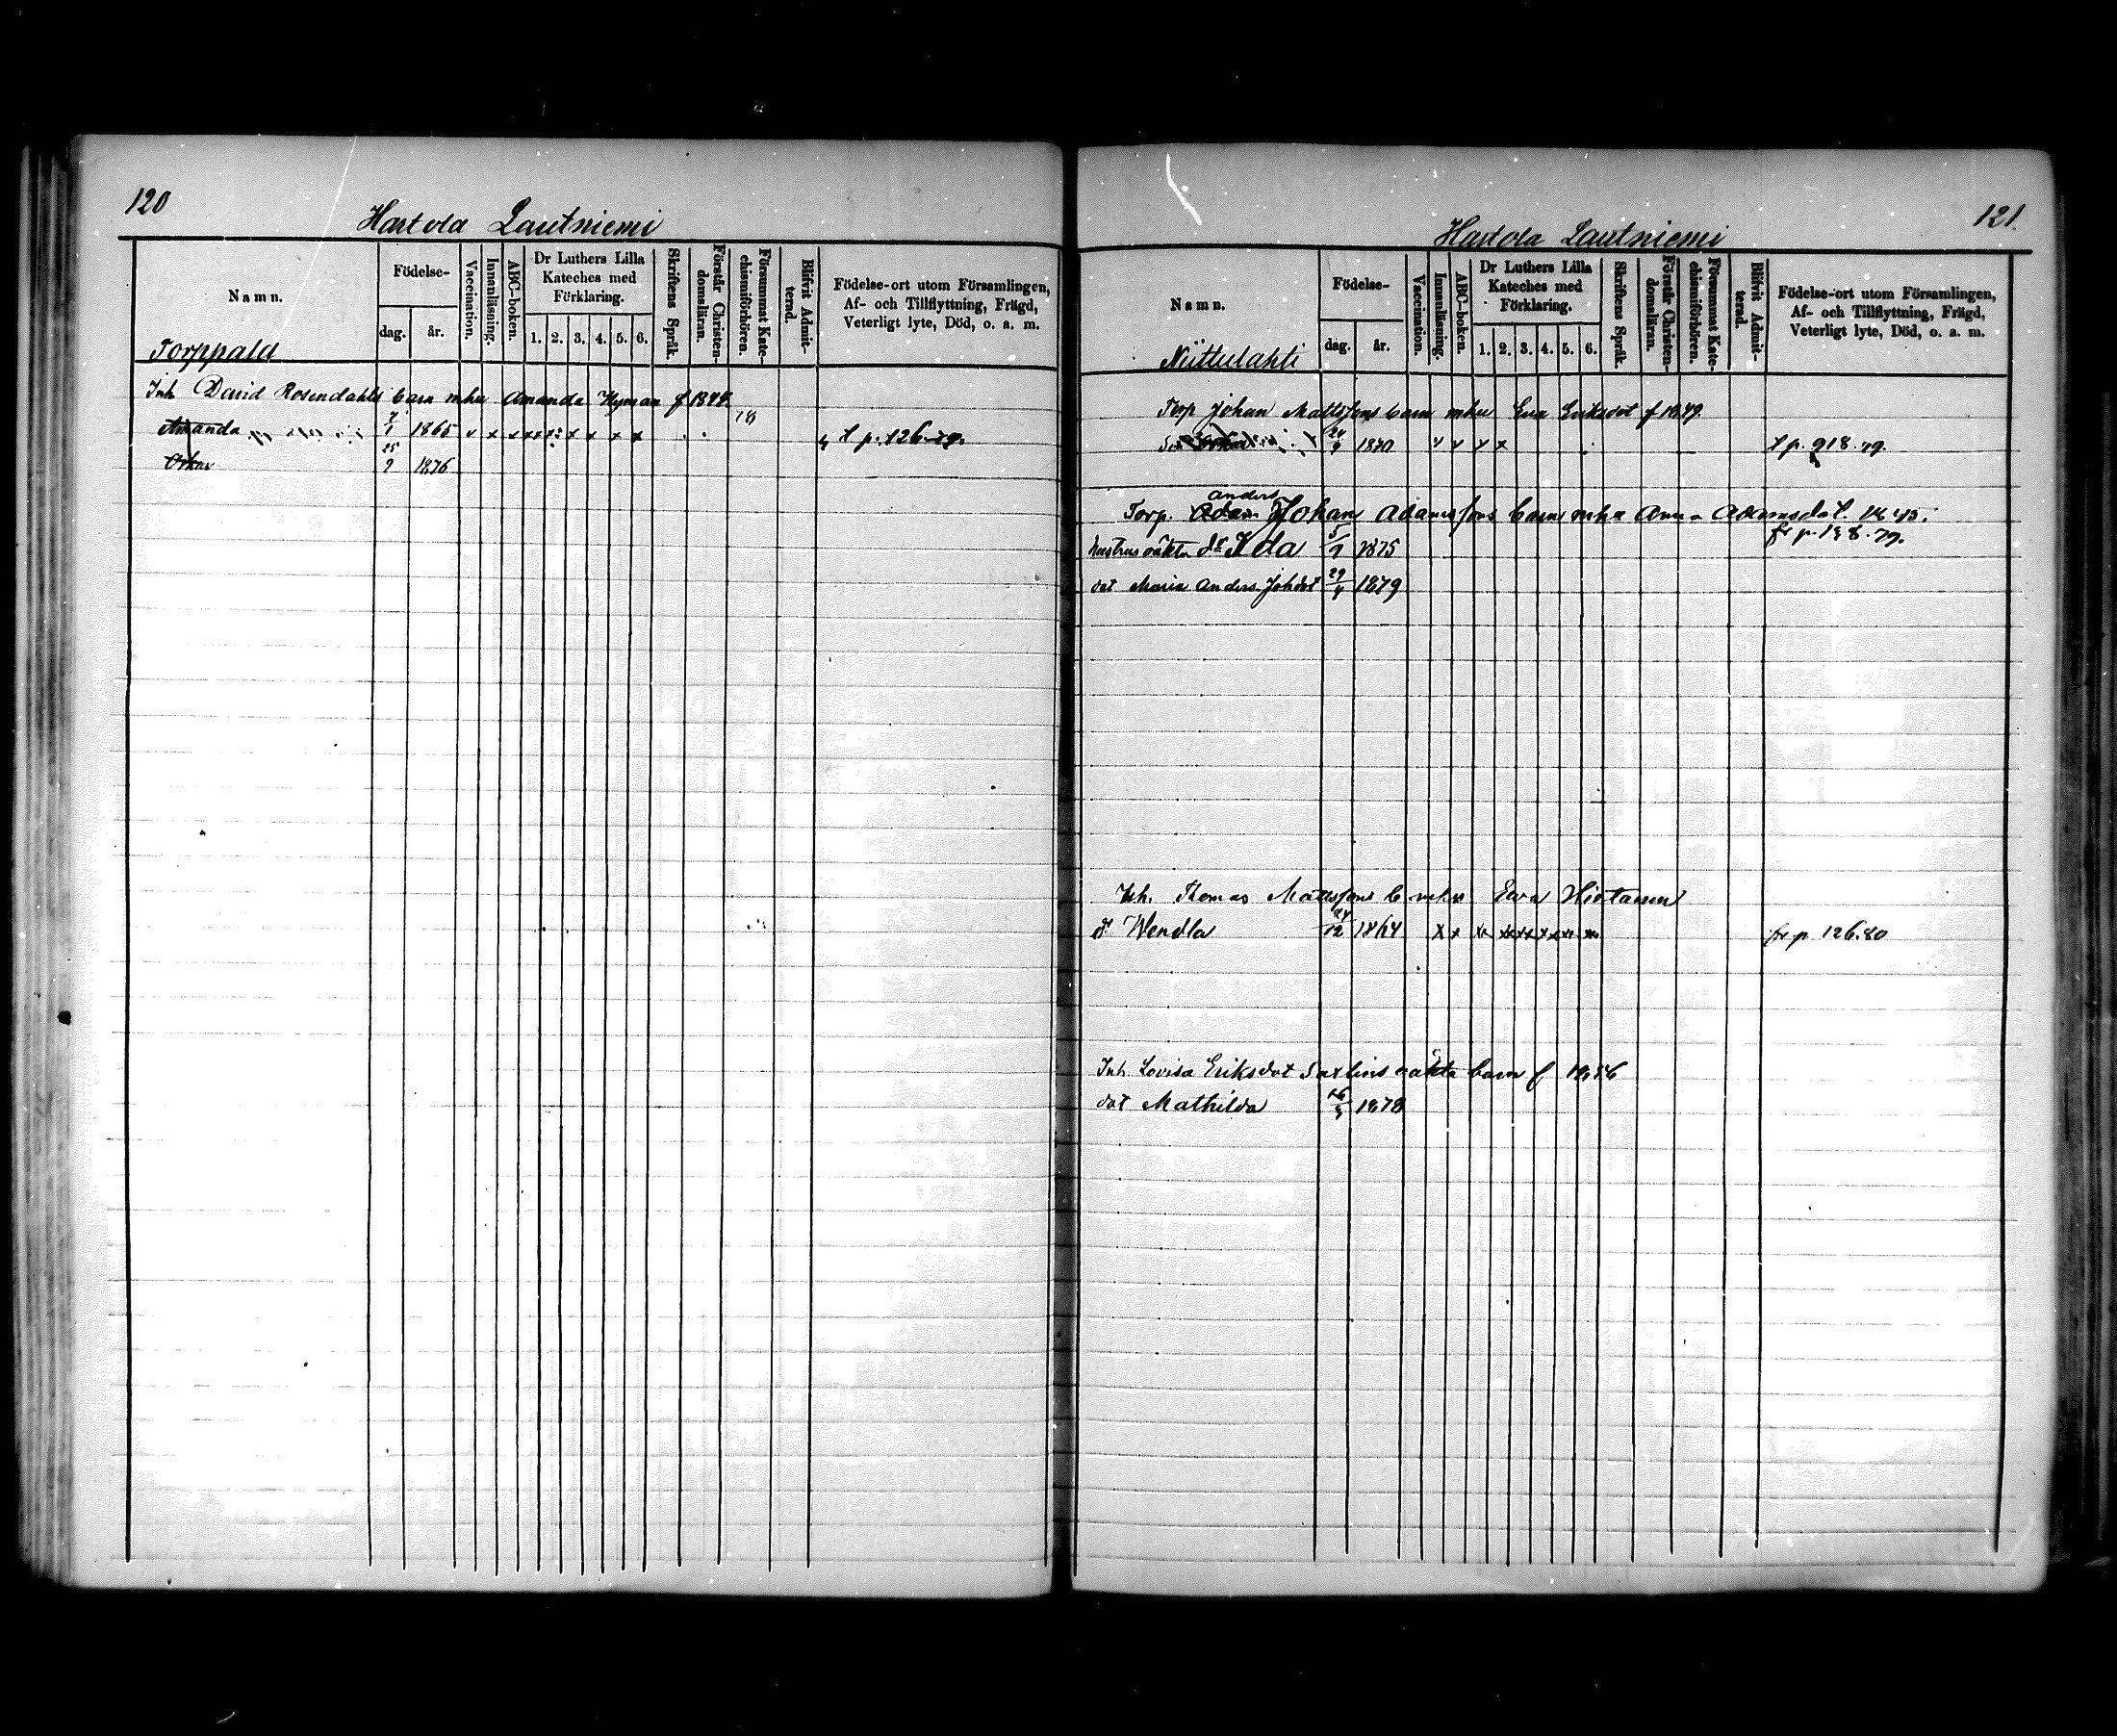 120
Hartola Lautniemi
Namn.
Födelse-
dag.
år.
Vaccination.
Innanläsning.
ABC-boken.
Dr Luthers Lilla Kateches med Förklaring.
1. 2. 3. 4. 5. 6.
Skriftens Språk.
Förstår Christendomsläran.
Försummat Katechismiförhören.
Blifvit Admitterad.
Födelse-ort utom Församlingen,
Af- och Tillflyttning, Frägd,
Veterligt lyte, Död, o. a. m.
Torppald
Inh David Rosendahls barn mhu Amanda Nyman f 1844
Amanda 7/1 1865 v x x x x x x x x t p. 126. 79.
Oskar 25/9 1876
121.
Hartola Lautniemi
Namn.
Födelse-
dag.
år.
Vaccination.
Innanläsning.
ABC-boken.
Dr Luthers Lilla Kateches med Förklaring.
1. 2. 3. 4. 5. 6.
Skriftens Språk.
Förstår Christendomsläran.
Försummat Katechismiförhören.
Blifvit Admitterad.
Födelse-ort utom Församlingen,
Af- och Tillflyttning, Frägd,
Veterligt lyte, Död, o. a. m.
Niittulahti
Torp Johan Mattssons barn mhu Eva Eriksdot f 1849.
24/9 1870 v v x x t p. 918. 79.
Anders
Torp. Adam Johan Adamssons barn mha Anna Adamsdot. 1845.
Hustrus oäkta dr Ida 5/1 1875 fr p. 138. 79.
dot Maria Anders. Johdot 29/4 1879
Inh. Thomas Mattssons b mhu Eva Hietanen
dr Wendla 24/12 1864 x x x x x x x x fr p 126. 80
Inh. Lovisa Eriksdot Saxlins oäkta barn f 1856
dot Mathilda 1878